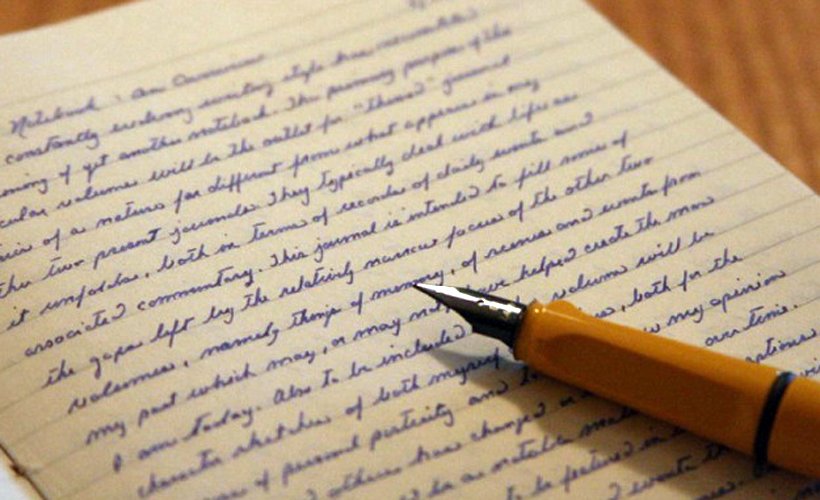 Notebook: An Overview
constantly evolving writing style has necessitated
of yet another notebook. The primary purpose of the
volumes will be the outlet for "themed" journal
of a nature far different from what appears in my
two present journals. They typically deal with life as
it unfolds, both in terms of records of daily events and
associated commentary. This journal is intended to fill some of
the gaps left by the relatively narrow focus of the other two
volumes, namely things of memory, of scenes and events from
my past which may, or may not, have helped create the man
I am today. Also to be included volume will be
character sketches of both myself , both for the
of personal posterity and my opinion
others have changed over time.
be a notable
to be featured in